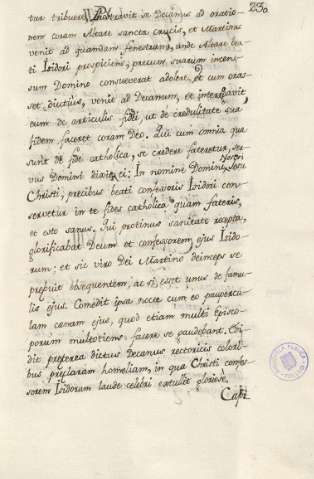 230
tur tribuere. Prostravit se Decanus ad oratio-
nem coram Altare sanctæ Crucis, et Martinus
venit ad quamdam fenestram, unde Altare bea-
ti Isidori prospiciens, precum suarum incen-
sum Domino consueverat adolere, et cum oras-
set diutius, venit ad Decanum, et interrogavit
eum de articulis fidei, ut de credulitate sua
fidem faceret coram Deo. Qui cum omnia quæ
sunt de fide catholica, se credere fateretur, ser-
vus Domini dixit ei: In nomine Domini Nostri Jesu
Christi, precibus beati confessoris Isidori con-
servetur in te fides catholica quam fateris,
et esto sanus. Qui protinus sanitate recepta,
glorificabat Deum et confessorem ejus Isido-
rum; et sic viro Dei Martino deinceps se
præbuit obsequentem, ac si esset unus de famu-
lis ejus. Comedit ipsa nocte cum eo paupercu-
lam cœnam ejus, quod etiam multi Episco-
porum multoties facere se gaudebant. Edi-
dit præterea dictus Decanus rectoricis colori-
bus præclaram homeliam, in qua Christi confes-
sorem Isidorum laude celebri extulit gloriose.
Capi